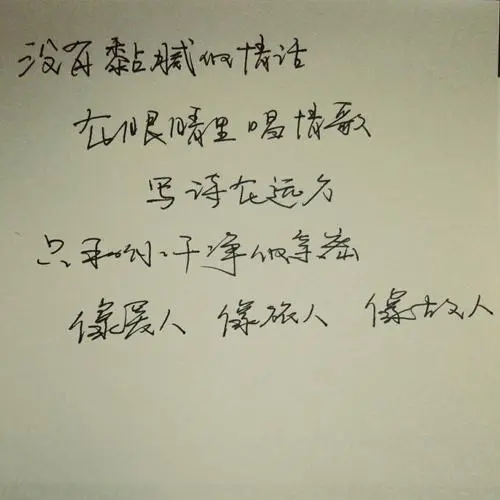 没有黏腻的情话
在眼睛里唱情歌
写诗在远方
只 干净的
像爱人 像旅人 像故人